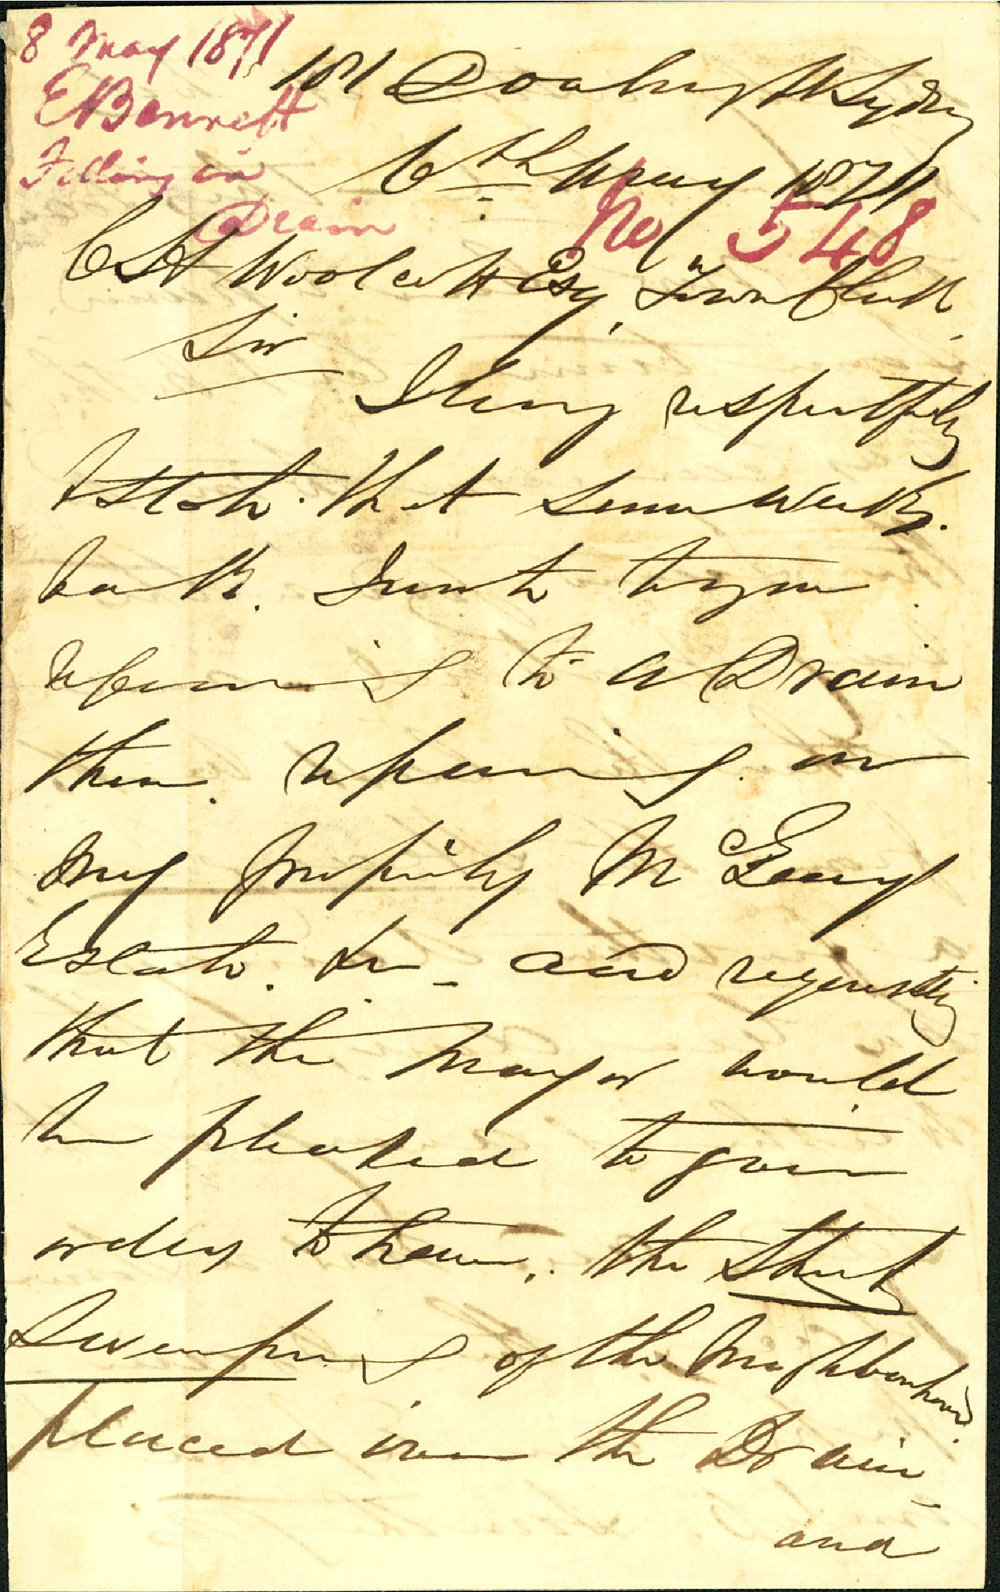 8 May 1871
E Bennett
Filling in
Drain
No 548
181 St Sydney
6th May 1871
C H Woolcott Esq, Town Clerk
Sir
I beg respectfully
to state that some weeks
back I wrote to you
refering to a Drain
then on
my property McGeary
Estate. and requesting
that the Mayor would
be pleased to give
orders to have the Street
Sweepings of the Neighbourhood
placed over the Drain
and